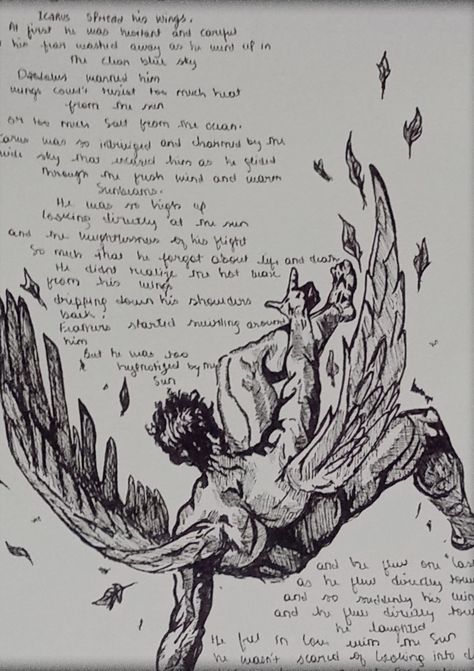 Icarus spread his wings.
At first he was hesitant and careful
his fear washed away as he went up in
the clean blue sky
Daedalus warned him
wings couldn't resist too much heat
from the sun
or too much salt from the ocean.
Icarus was so intrigued and charmed by the
wide sky that him as he glided
through the fresh wind and warm
sunbeams.
He was so high up
looking directly at the sun
and the weightlessness of his flight
So much that he forgot about life and death
He didnt realize the hot wax
from his wings
dripping down his shoulders
back.
Feathers started swirling around
him
But he was too
hypnotized by the
sun
and he flew one "las
as he flew directly tow
and so suddenly his win
and he flew directly tow
he laughed
He fell in love with the sun
he wasn't scared of looking into d